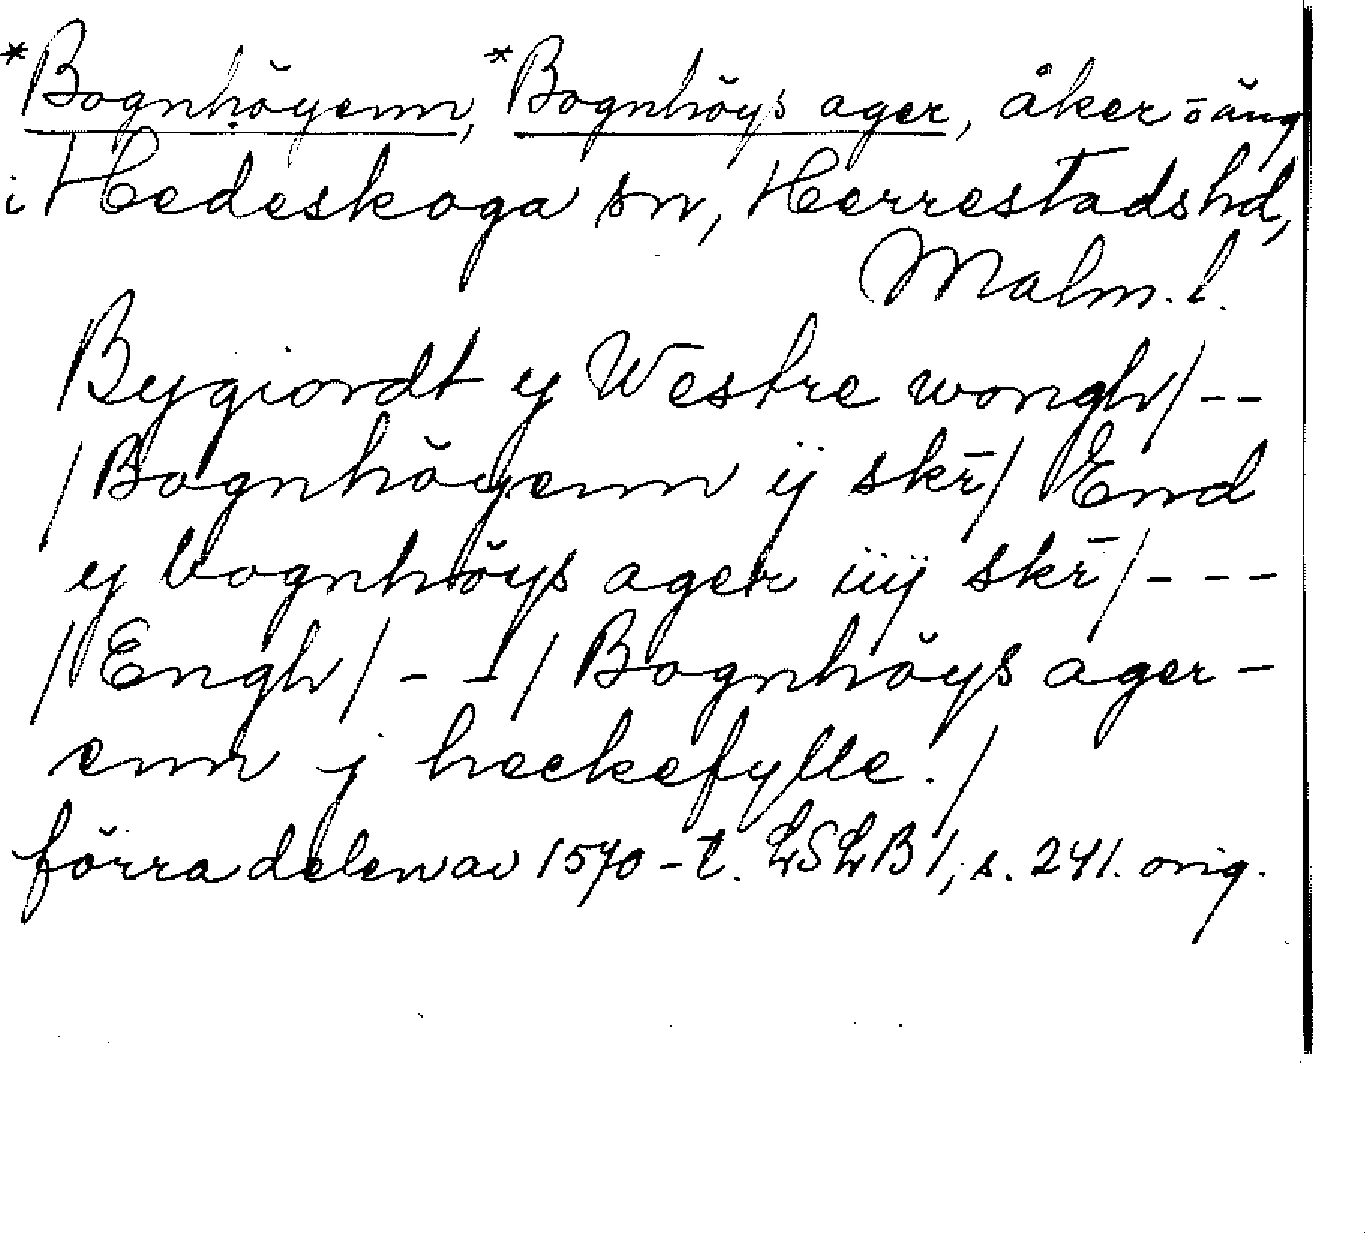 *Bognhöyenn, *Bognhöys ager, åker o äng
i Hedeskoga sn, Herrestads hd,
Malm. l.
Bygiordt y Westre wongh/--
/Bognhöyenn ij skr̄/ End
y bognhöys ager iiij skr̄/---
/Engh/--/Bognhöys ager-
enn j heckefylle./
förra delen av 1570-t. LSLB 1, s. 241. orig.